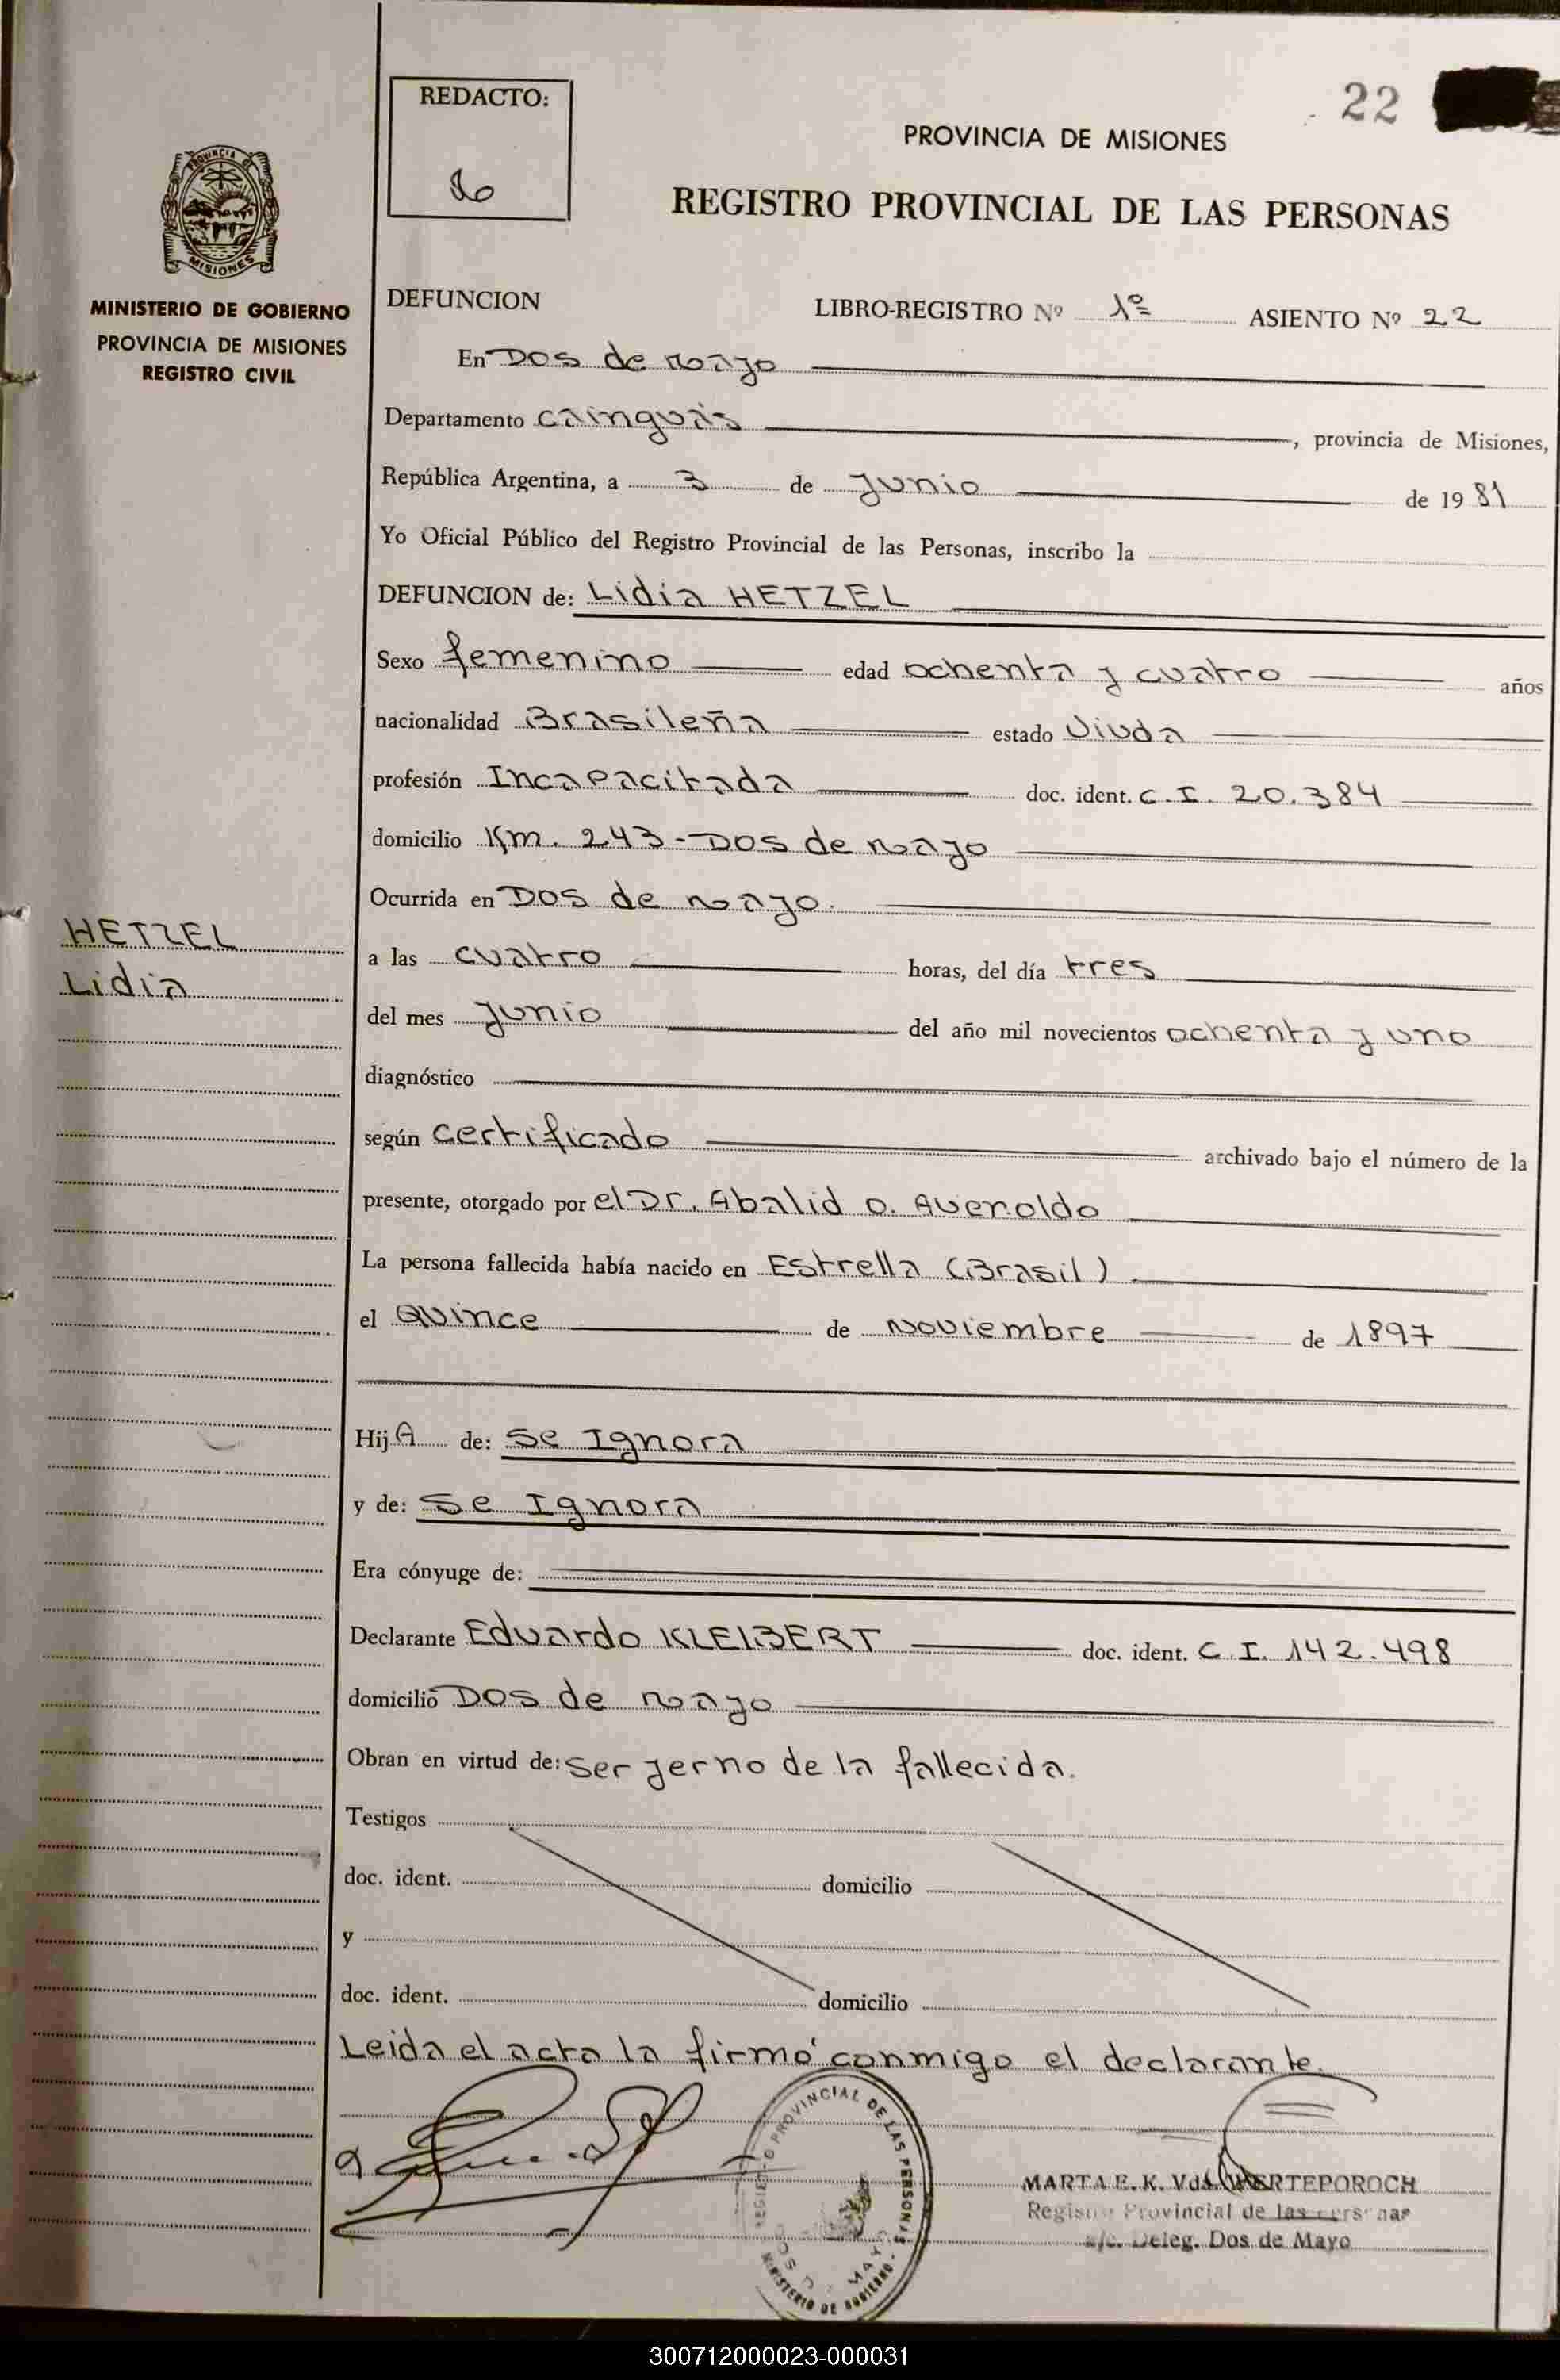 22
REDACTO:
PROVINCIA DE MISIONES
REGISTRO PROVINCIAL DE LAS PERSONAS
PROVINCIA DE
MISIONES
MINISTERIO DE GOBIERNO
PROVINCIA DE MISIONES
REGISTRO CIVIL
DEFUNCION LIBRO-REGISTRO Nº 1º ASIENTO Nº 22
En Dos de mayo
Departamento cainguás, provincia de Misiones,
República Argentina, a 3 de Junio de 1981
Yo Oficial Público del Registro Provincial de las Personas, inscribo la
DEFUNCION de: Lidia HETZEL
Sexo femenino edad ochenta y cuatro años
nacionalidad Brasileña estado Viuda
profesión Incapacitada doc. ident. C.I. 20.384
domicilio Km. 243-Dos de mayo
Ocurrida en Dos de mayo.
HETZEL
Lidia
a las cuatro horas, del día tres
del mes Junio del año mil novecientos ochenta y uno
diagnóstico
según certificado archivado bajo el número de la
presente, otorgado por el Dr. Abalid O. Averoldo
La persona fallecida había nacido en Estrella (Brasil)
el Quince de Noviembre de 1897
Hija de: Se Ignora
y de: Se Ignora
Era cónyuge de:
Declarante Eduardo KLEIBERT doc. ident. C.I. 142.498
domicilio Dos de mayo
Obran en virtud de: ser yerno de la fallecida.
Testigos
doc. ident. domicilio
y
doc. ident. domicilio
Leida el acta la firmó conmigo el declarante.
REGISTRO PROVINCIAL DE LAS PERSONAS
MINISTERIO DE GOBIERNO
MARTA E. K. Vda. WERTEPOROCH
Registro Provincial de las Personas
a/c. Deleg. Dos de Mayo
300712000023-000031